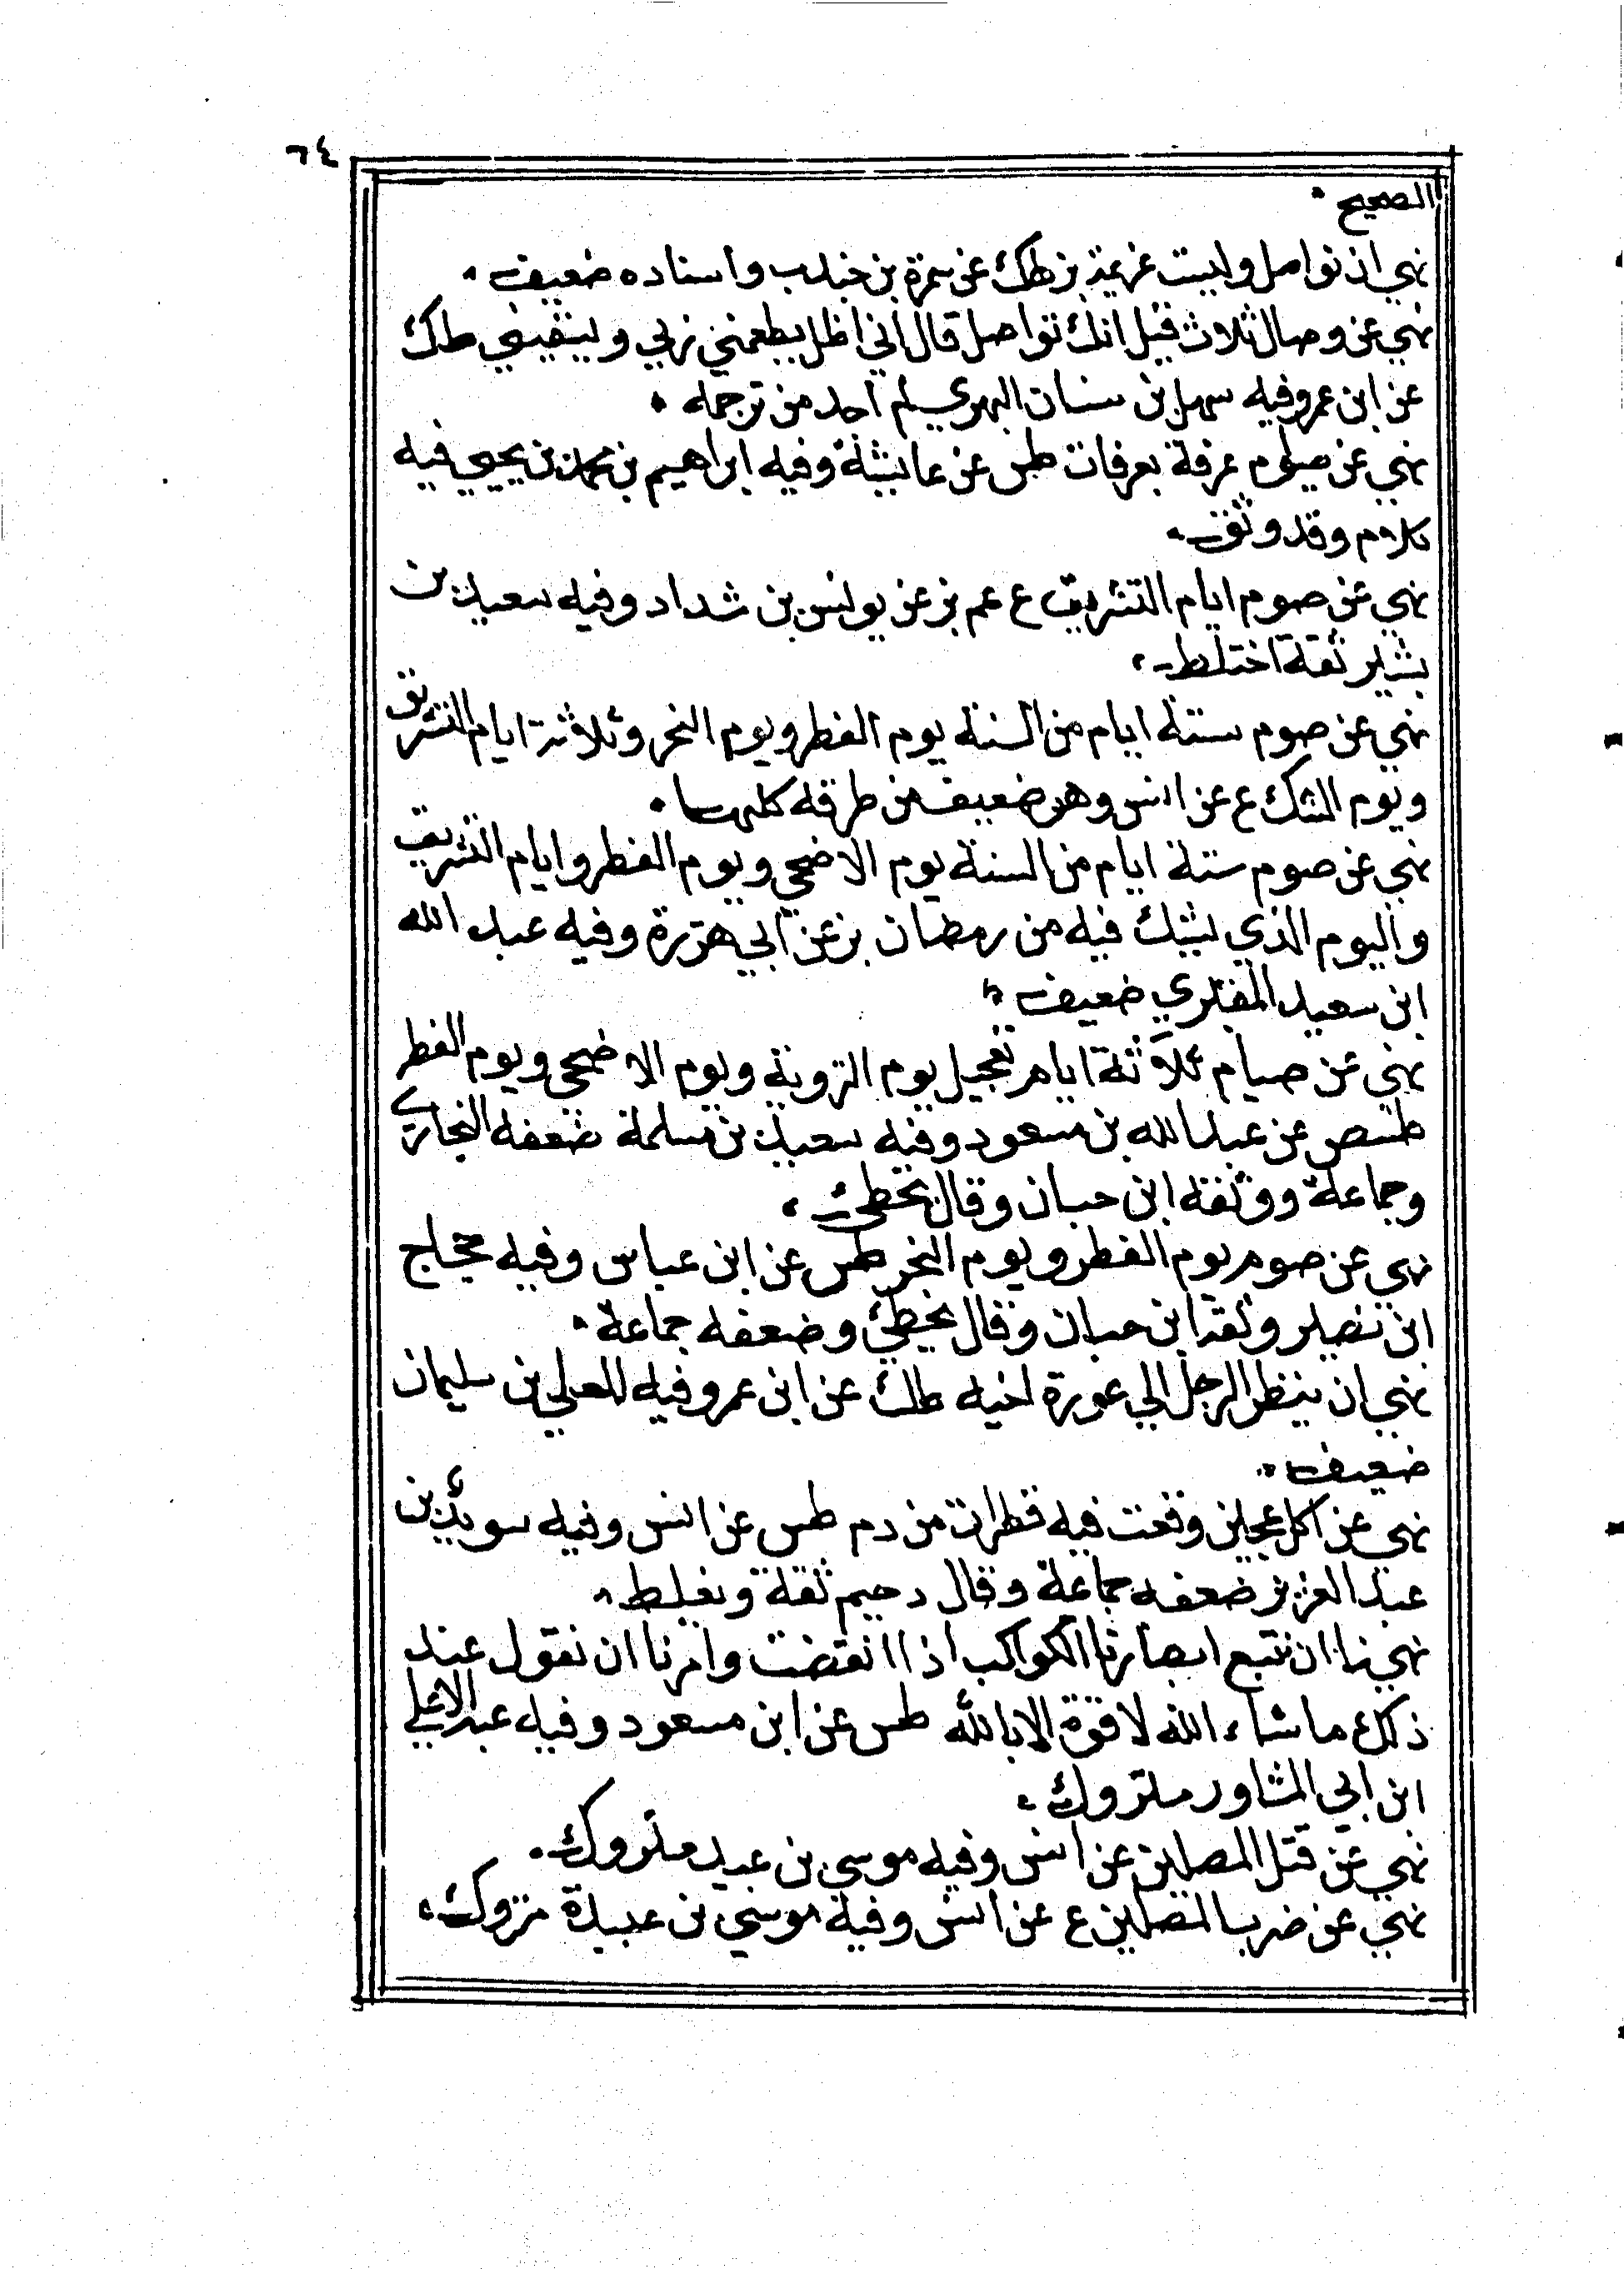 ٦٤
الصحيح
نهي ان نواصل وليست عزيمة بز طك عن سمرة بن جندب واسناده ضعيف
نهي عن وصال ثلاث قيل انك تواصل قال اني اظل يطعمني ربي ويسقيني طك
عن ابن عمر وفيه سهل بن سنان البهري لم اجد من ترجمه
نهي عن صوم عرفة بعرفات طس عن عائشة وفيه ابراهيم بن محمد بن يحيي فيه
كلام وقد وثق
نهي عن صوم ايام التشريق ع عم بز عن يونس بن شداد وفيه سعيد بن
بشير ثقة اختلط
نهي عن صوم ستة ايام من السنة يوم الفطر ويوم النحر وثلاثة ايام التشريق
ويوم الشك ع عن انس وهو ضعيف من طرقه كلها
نهي عن صوم ستة ايام من السنة يوم الاضحي ويوم الفطر وايام التشريق
واليوم الذي يشك فيه من رمضان بز عن ابي هريرة وفيه عبد الله
ابن سعيد المقبري ضعيف
نهي عن صيام ثلاثة ايام تعجيل يوم التروية ويوم الاضحي ويوم الفطر
طسص عن عبد الله بن مسعود وفيه سعيد بن مسلمة ضعفه البخاري
وجماعة ووثقه ابن حبان وقال يخطئ
نهي عن صوم يوم الفطر ويوم النحر طس عن ابن عباس وفيه حجاج
ابن نصير وثقه ابن حبان وقال يخطئ وضعفه جماعة
نهي ان ينظر الرجل الي عورة اخيه طك عن ابن عمر وفيه المعلي بن سليمان
ضعيف
نهي عن اكل عجين وقعت فيه قطرات من دم طس عن انس وفيه سويد بن
عبد العزيز ضعفه جماعة وقال دحيم ثقة ويغلط
نهينا ان نتبع ابصارنا الكواكب اذا انقضت وامرنا ان نقول عند
ذلك ما شاء الله لا قوة الا بالله طس عن ابن مسعود وفيه عبد الاعلي
ابن ابي المشاور متروك
نهي عن قتل المصلين عن انس وفيه موسي بن عبيد متروك
نهي عن ضرب المصلين ع عن انس وفيه موسي بن عبيدة متروك